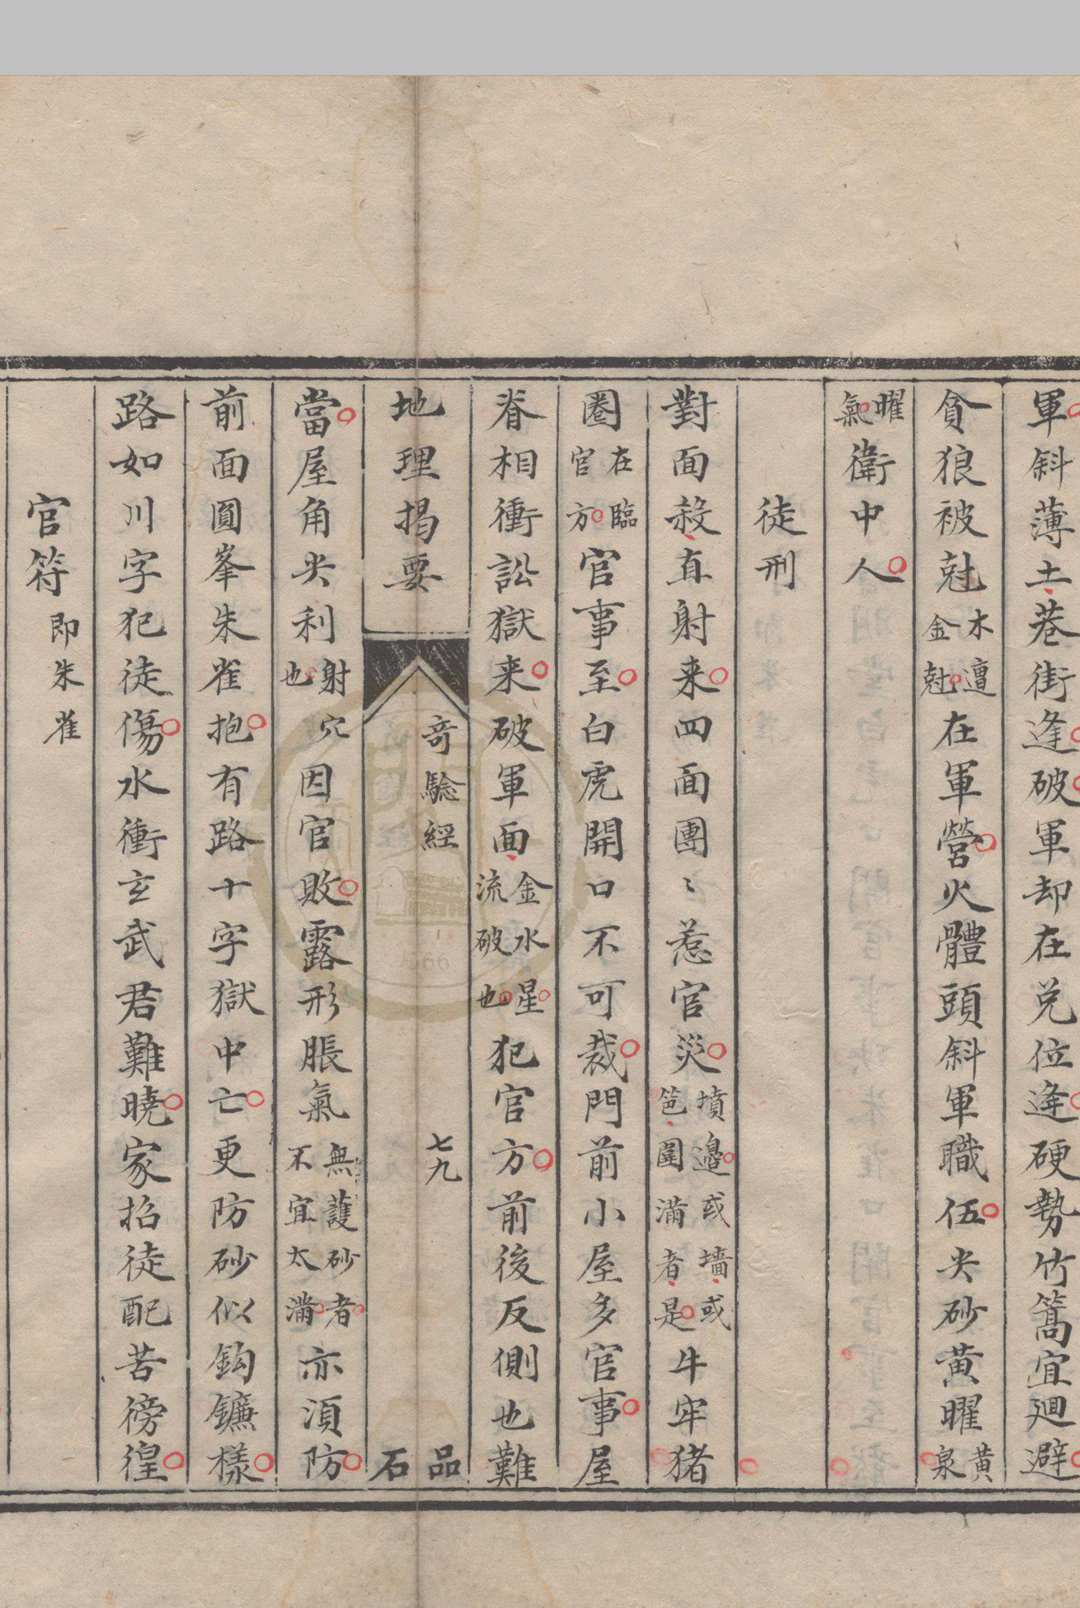 軍斜薄土巷街逢破軍却在兌位逢硬勢竹篙宜廻避
貪狼被尅木遭金尅在軍營火體頭斜軍職伍尖砂黃曜黃泉
曜氣衛中人
徒刑
對面殺直射來四面團〻惹官災墳邊或墻或笆圍滿者是牛牢猪
圈在臨官方官事至白虎開口不可裁門前小屋多官事屋
脊相衝訟獄来破軍面金水星流破也犯官方前後反側也難
地理揭要 奇驗經 七九 品石
當屋角尖利射穴也因官敗露形脹氣無護砂者不宜太滿亦須防
前面圓峯朱雀抱有路十字獄中亡更防砂似鈎鐮樣
路如川字犯徒傷水衝玄武君難曉家招徒配苦徬徨
官符即朱雀